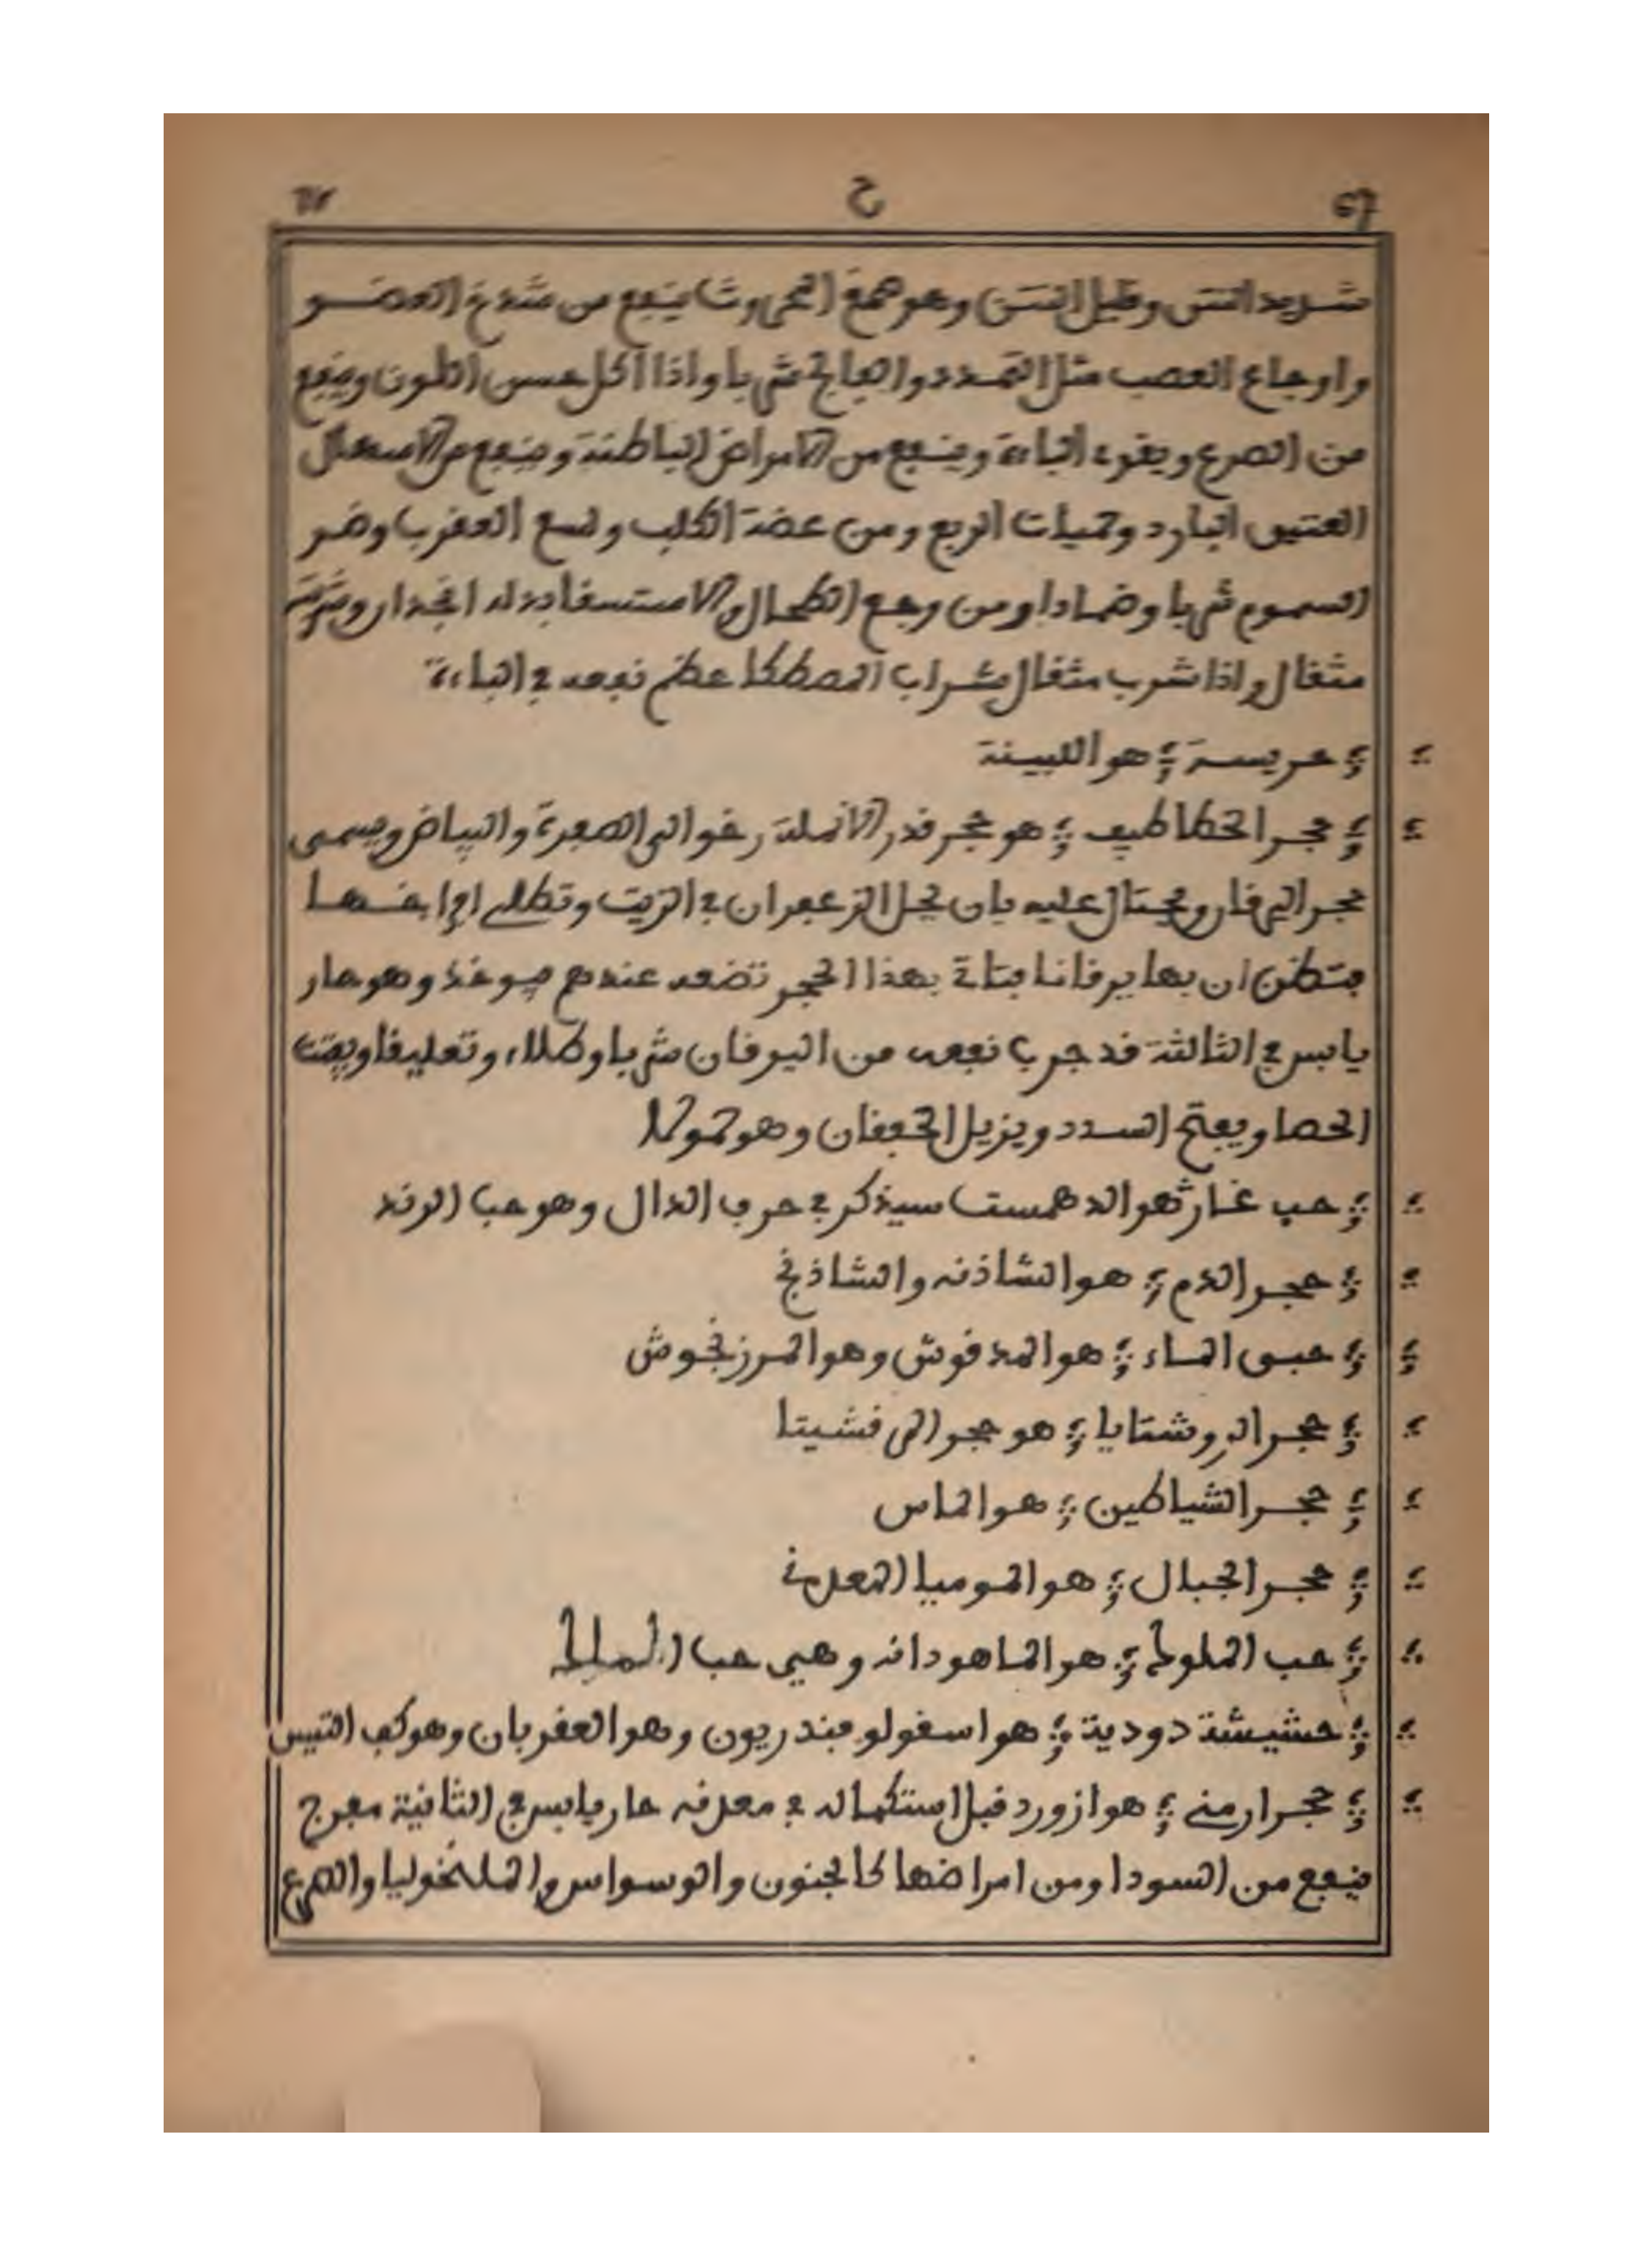 67 ح ٦٧
شديد النتن وقليل النتن وهو صمغ المحروث ينفع من شدخ العضو
واوجاع العصب مثل التمدد والفالج شربا واذا اكل حسن اللون وينفع
من الصرع ويقوي الباءة وينفع من الامراض الباطنة وينفع من الاسهال
العتيق البارد وحميات الربع ومن عضة الكلب ولسع العقرب وضر
السموم شربا وضمادا ومن وجع الطحال والاستسقا بدله الجدار وشربته
مثقال واذا شرب مثقال بشراب المصطكا عظم نفعه في الباءة
حريسة هو اللبينة
حجر الخطاطيف هو حجر قدر الانملة رخو الى الصفرة والبياض ويسمى
حجر اليرقان ويحتال عليه بان يحل الزعفران في الزيت وتطلى افراخها
فتظن ان بها يرقانا فتاتي بهذا الحجر تضعه عندهم فيوخذ وهو حار
يابس في الثالثة قد جرب نفعه من اليرقان شربا وطلاء وتعليقا ويفتت
الحصا ويفتح السدد ويزيل الخفقان وهو حمولا
حب غار هو الدهمست سيذكر في حرف الدال وهو حب الرند
حجر الدم هو الشاذنه والشاذنج
حبق الماء هو المدقوش وهو المرزنجوش
حجر الروشتايا هو حجر المرقشيتا
حجر الشياطين هو الماس
حجر الجبال هو الموميا المعدني
حب الملوك هو الماهودانه وهي حب
حشيشة دودية هو اسقولوفندريون وهو العقربان وهو كف التيس
حجر ارمني هو ازورد قبل استكماله في معدنه حار يابس في الثانية مفرح
ينفع من السودا ومن امراضها كالجنون والوسواس والملنخوليا والصرع